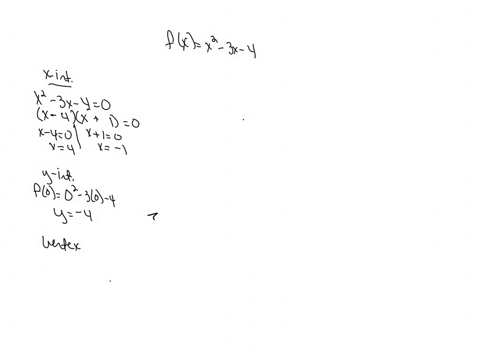 f(x)=x²-3x-4
x-int.
x²-3x-4=0
(x-4)(x+1)=0
x-4=0 | x+1=0
x=4 x=-1
y-int.
f(0)=0²-3(0)-4
y=-4
vertex